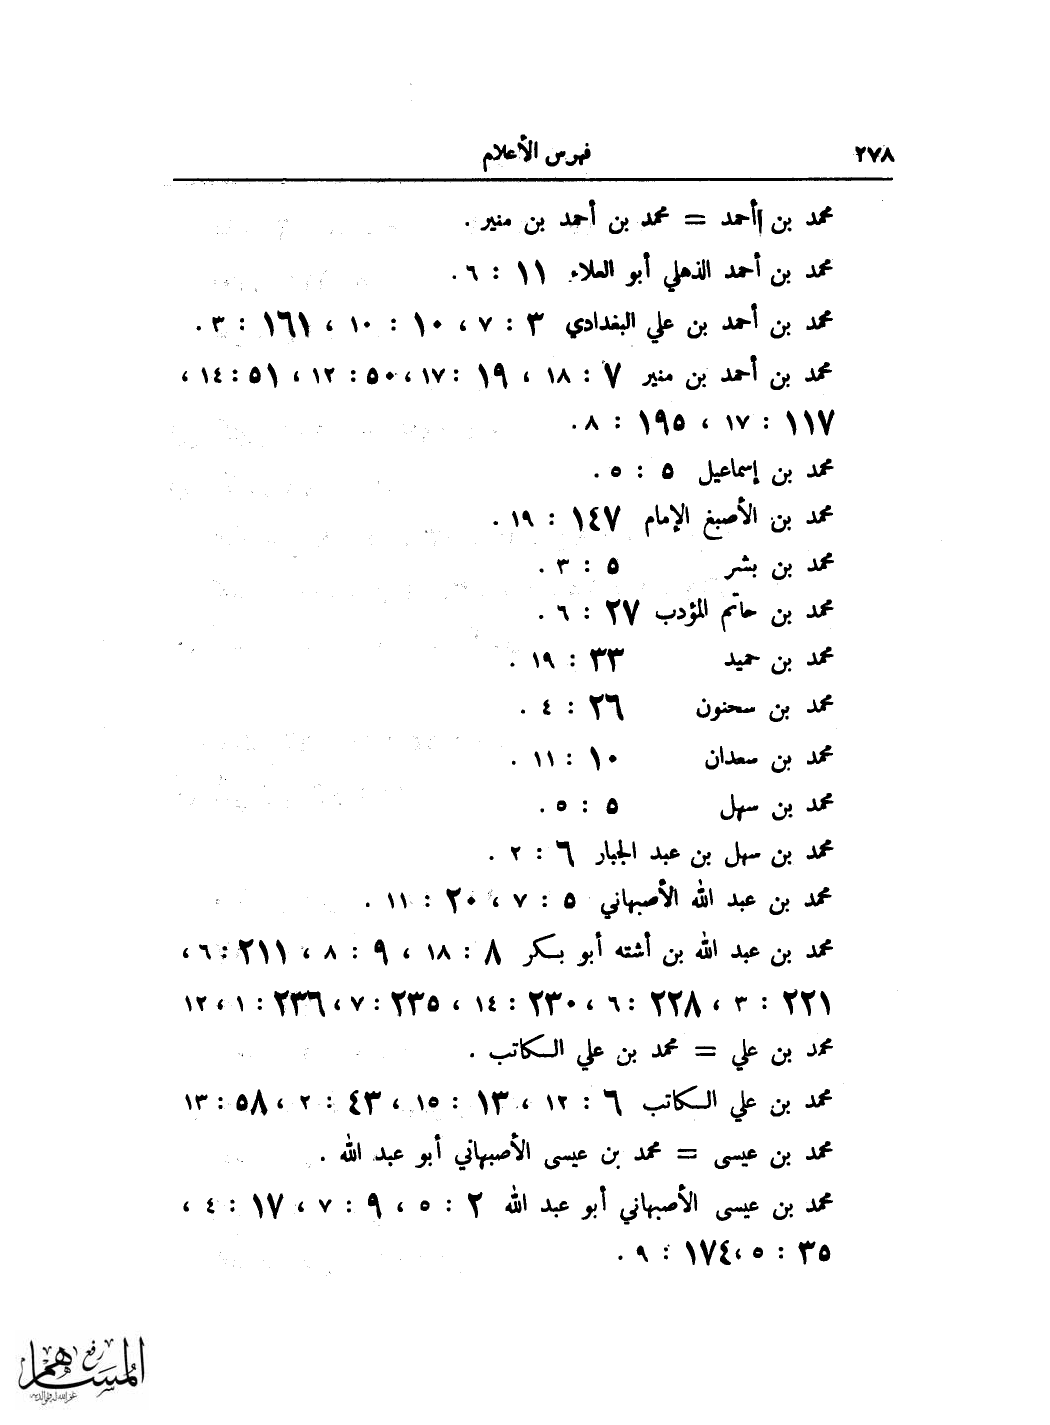 ٢٧٨ فهرس الأعلام
محمد بن أحمد = محمد بن أحمد بن منير .
محمد بن أحمد الذهلي أبو العلاء ١١ : ٦ .
محمد بن أحمد بن علي البغدادي ٣ : ٧ ، ١٠ : ١٠ ، ١٦١ : ٣ .
محمد بن أحمد بن منير ٧ : ١٨ ، ١٩ : ١٧ ، ٥٠ : ١٢ ، ٥١ : ١٤ ،
١١٧ : ١٧ ، ١٩٥ : ٨ .
محمد بن إسماعيل ٥ : ٥ .
محمد بن الأصبغ الإمام ١٤٧ : ١٩ .
محمد بن بشر ٥ : ٣ .
محمد بن حاتم المؤدب ٢٧ : ٦ .
محمد بن حميد ٣٣ : ١٩ .
محمد بن سحنون ٢٦ : ٤ .
محمد بن سعدان ١٠ : ١١ .
محمد بن سهل ٥ : ٥ .
محمد بن سهل بن عبد الجبار ٦ : ٢ .
محمد بن عبد الله الأصبهاني ٥ : ٧ ، ٢٠ : ١١ .
محمد بن عبد الله بن أشته أبو بكر ٨ : ١٨ ، ٩ : ٨ ، ٢١١ : ٦ ،
٢٢١ : ٣ ، ٢٢٨ : ٦ ، ٢٣٠ : ١٤ ، ٢٣٥ : ٧ ، ٢٣٦ : ١ ، ١٢
محمد بن علي = محمد بن علي الكاتب .
محمد بن علي الكاتب ٦ : ١٢ ، ١٣ : ١٥ ، ٤٣ : ٢ ، ٥٨ : ١٣
محمد بن عيسى = محمد بن عيسى الأصبهاني أبو عبد الله .
محمد بن عيسى الأصبهاني أبو عبد الله ٢ : ٥ ، ٩ : ٧ ، ١٧ : ٤ ،
٣٥ : ٥ ، ١٧٤ : ٩ .
رفع
المساهم